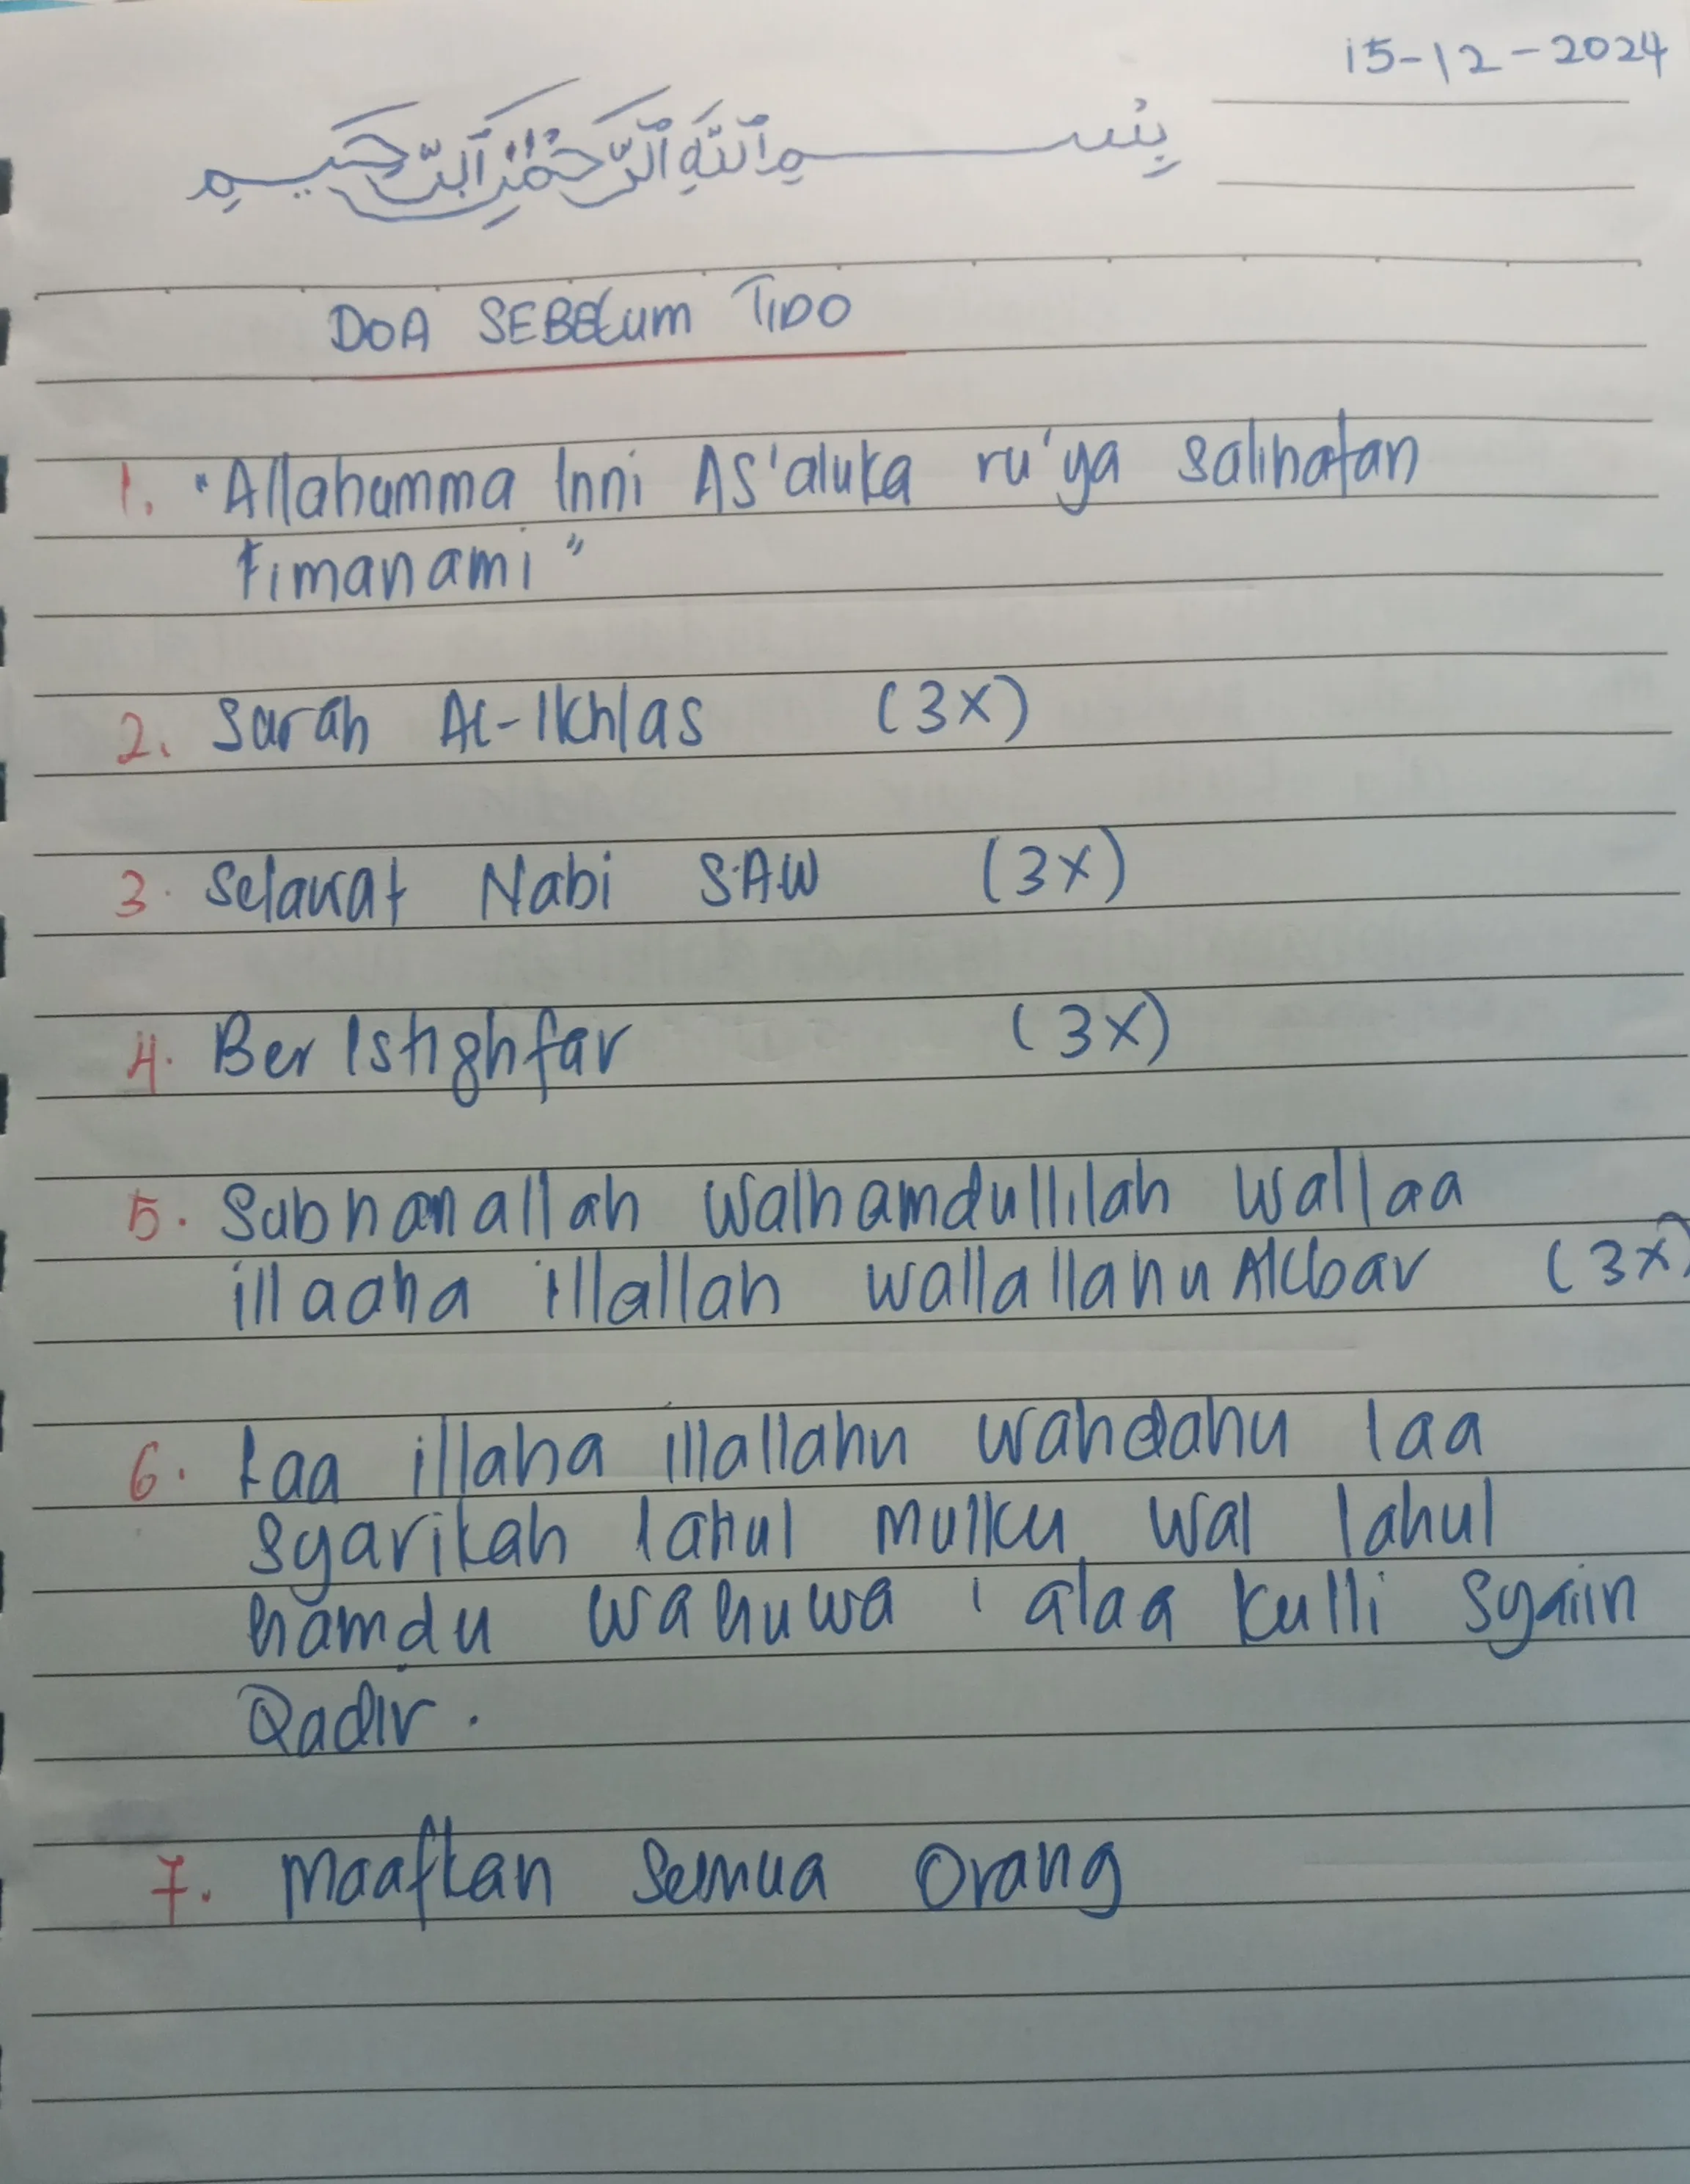 15-12-2024
بِسْمِ ٱللَّهِ ٱلرَّحْمَٰنِ ٱلرَّحِيمِ
DOA SEBELUM TIDO
1. "Allahumma Inni As'aluka ru'ya salihatan
fimanami"
2. Surah Al-Ikhlas (3x)
3. Selawat Nabi S.A.W (3x)
4. Ber Istighfar (3x)
5. Subhanallah walhamdullilah wallaa
illaaha illallah wallallahu Akbar (3x)
6. Laa illaha illallahu wahdahu laa
syarikah lahul mulku wal lahul
hamdu wahuwa 'alaa kulli syaiin
Qadir.
7. Maafkan semua orang